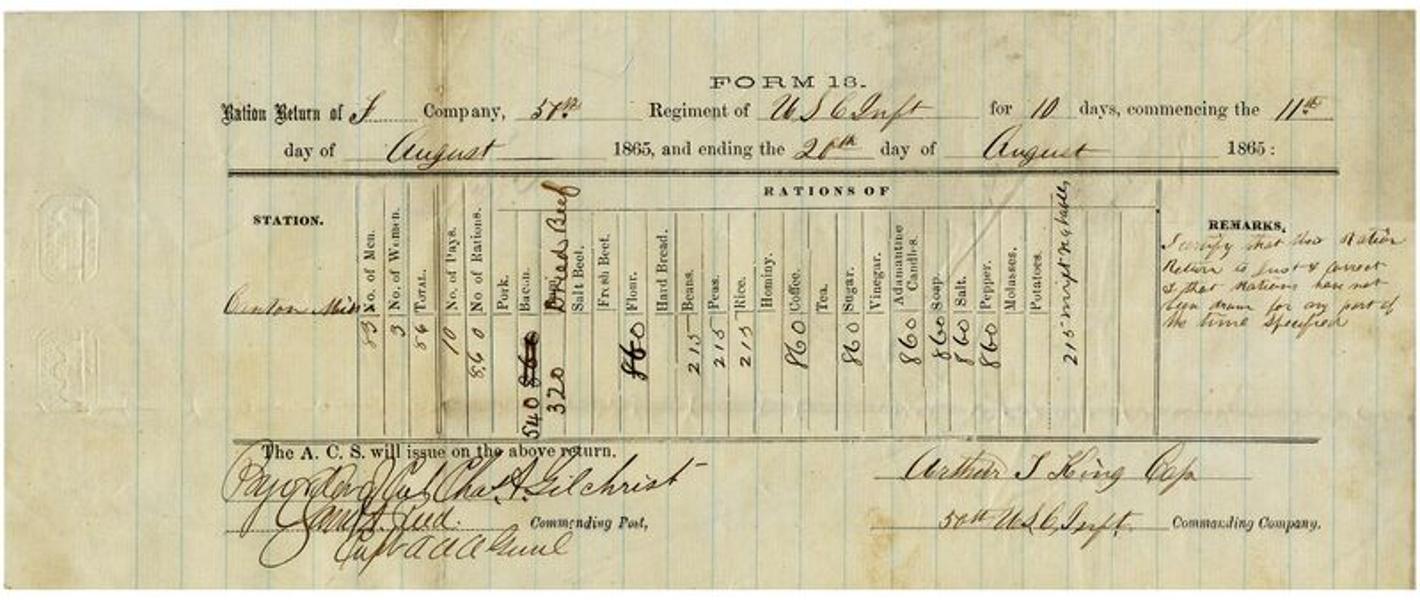 FORM 13.
Ration Return of F Company, 50th Regiment of U S C Inft for 10 days, commencing the 11th
day of August 1865, and ending the 20th day of August 1865:
RATIONS OF
STATION.
No. of Men.
No. of Women.
TOTAL.
No. of Days.
No of Rations.
Pork.
Bacon.
Dried Beef
Salt Beef.
Fresh Beef.
Flour.
Hard Bread.
Beans.
Peas.
Rice.
Hominy.
Coffee.
Tea.
Sugar.
Vinegar.
Adamantine Candles.
Soap.
Salt.
Pepper.
Molasses.
Potatoes.
215 mixt vegtables
REMARKS,
Canton Miss 83 3 86 10 860 540 860 320 860 215 215 215 860 860 860 860 860 860
I certify that this Ration
Return is Just & correct
& that Rations have not
been drawn for any part of
the time specified
The A. C. S. will issue on the above return.
By order of Col Chas. A. Gilchrist
Commending Post,
Capt
Arthur J King Cap
50th U.S.C. Inft. Commanding Company.